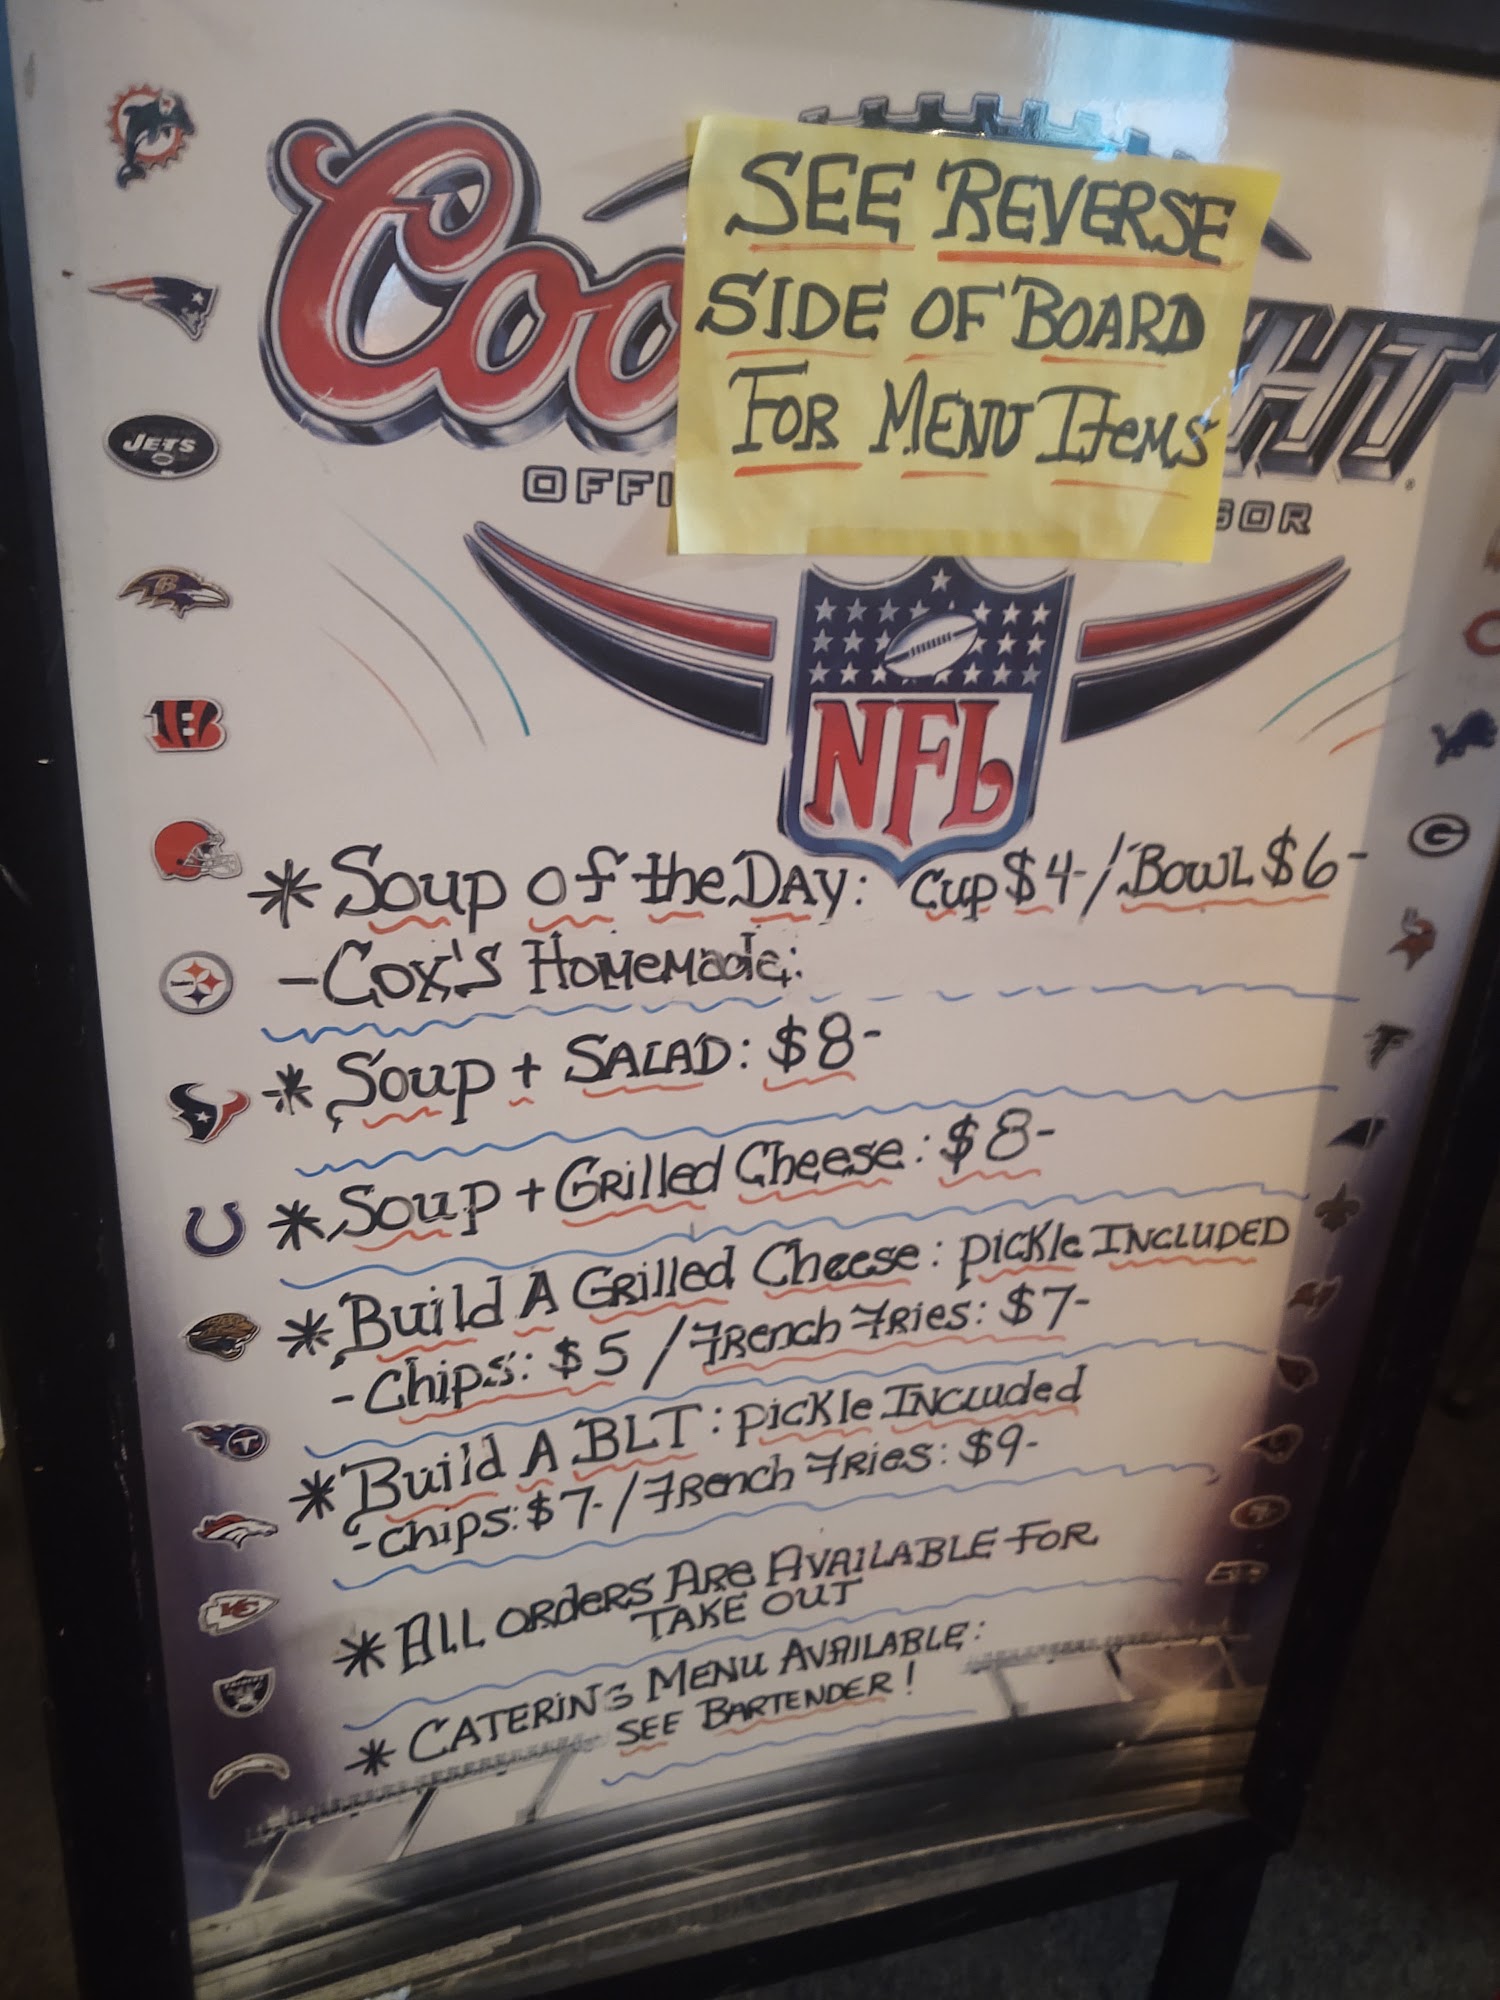 SEE REVERSE
SIDE OF BOARD
FOR MENU ITEMS
Coo
HT
OFFI
SOR
NFL
JETS
* Soup of the DAY: Cup $4-/Bowl $6-
-Cox's Homemade:
* Soup + SALAD: $8-
* Soup + Grilled Cheese: $8-
* Build A Grilled Cheese: Pickle INCLUDED
-Chips: $5 / French Fries: $7-
* Build A BLT: Pickle INCLuded
-Chips: $7-/French Fries: $9-
* ALL orders ARe AVAILABLE FOR
TAKE OUT
* CATERING MENU AVAILABLE:
SEE BARTENDER!
B
G
T
KC
RAIDERS